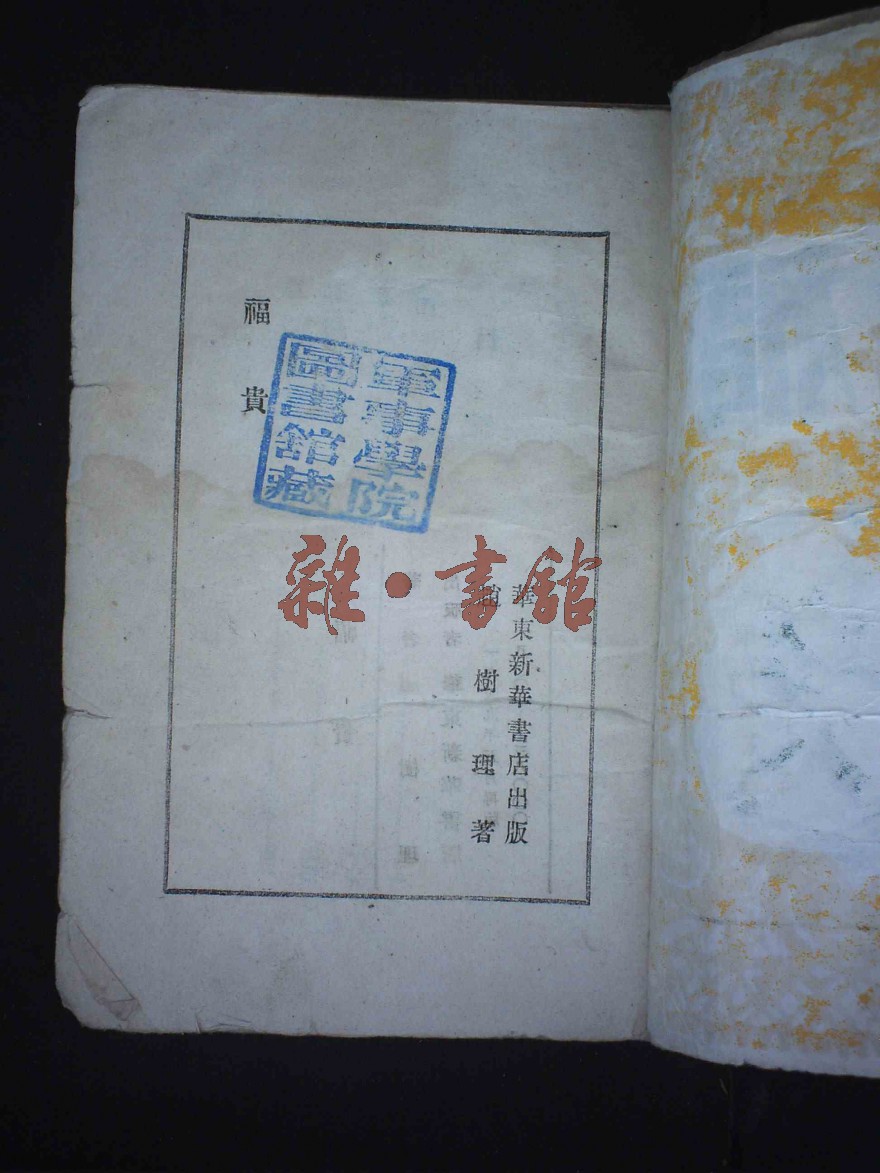 華東新華書店出版
趙樹理著
福貴
軍事學院
圖書館藏
雜·書館